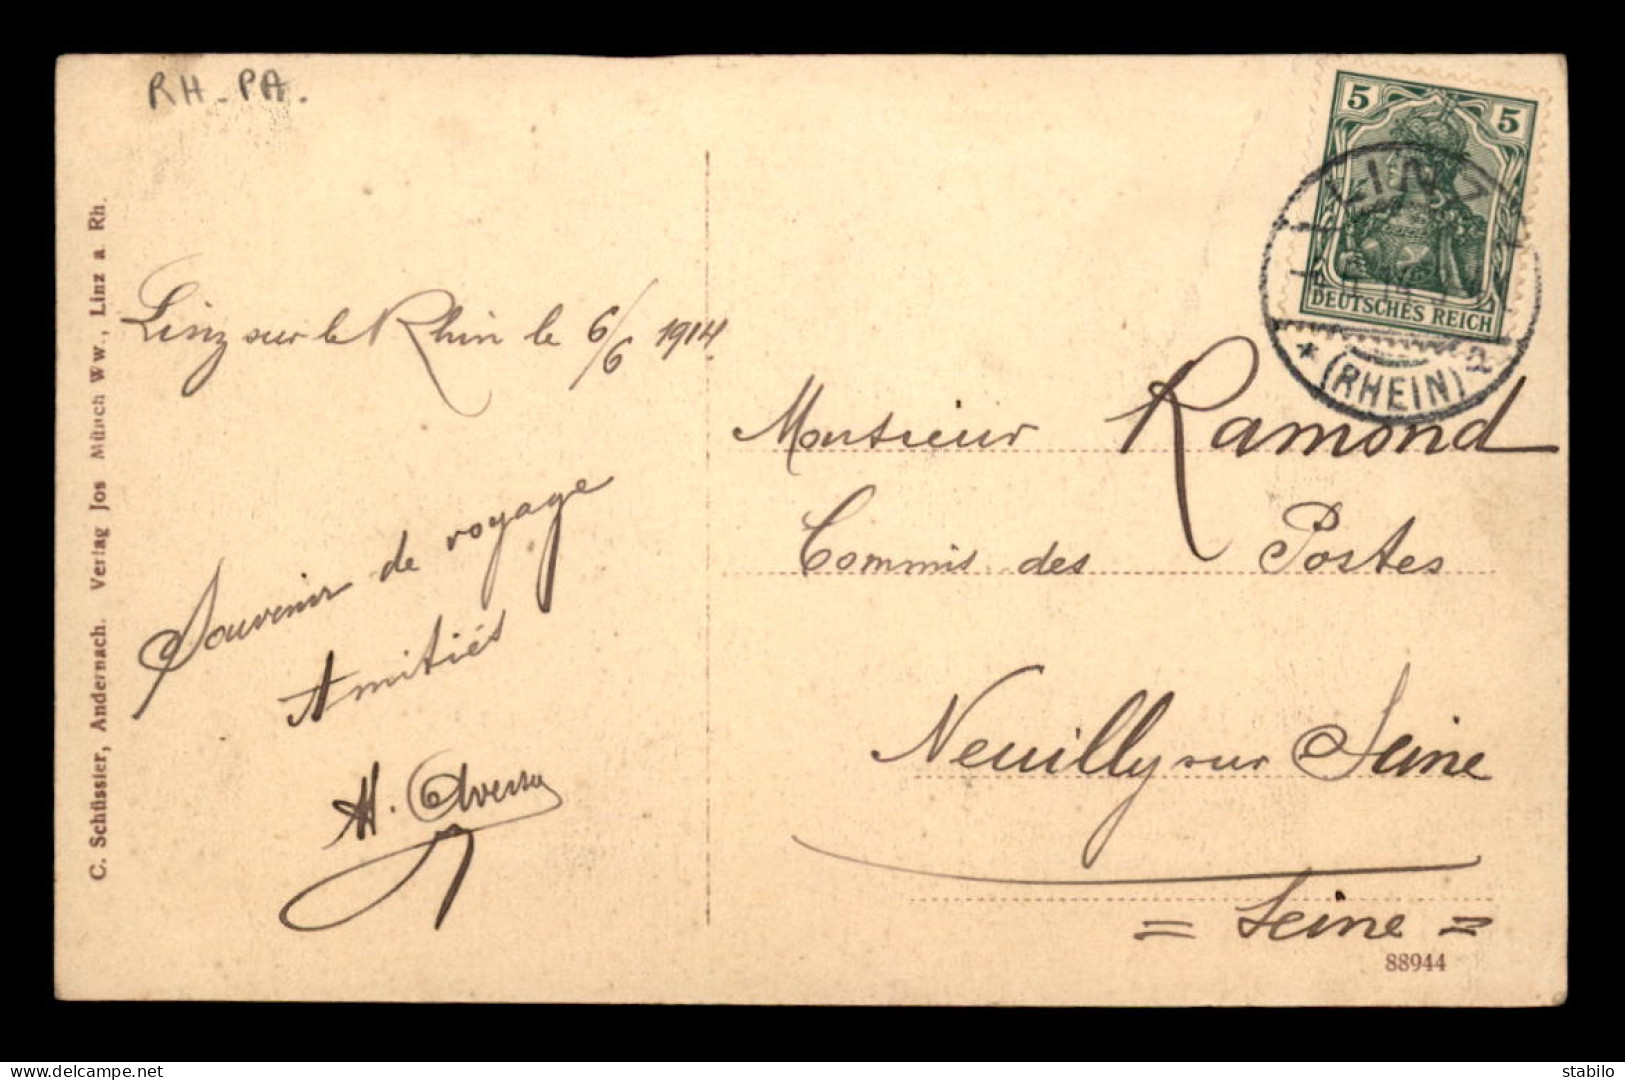 RH-PA.
C. Schüssler, Andernach. Verlag Jos Münch Ww., Linz a Rh.
Linz sur le Rhin le 6/6 1914
Souvenir de voyage
Amitiés
5 5
DEUTSCHES REICH
LINZ
(RHEIN)
Monsieur Ramond
Commis des Postes
Neuilly sur Seine
= Seine =
88944
delcampe.net
stabilo